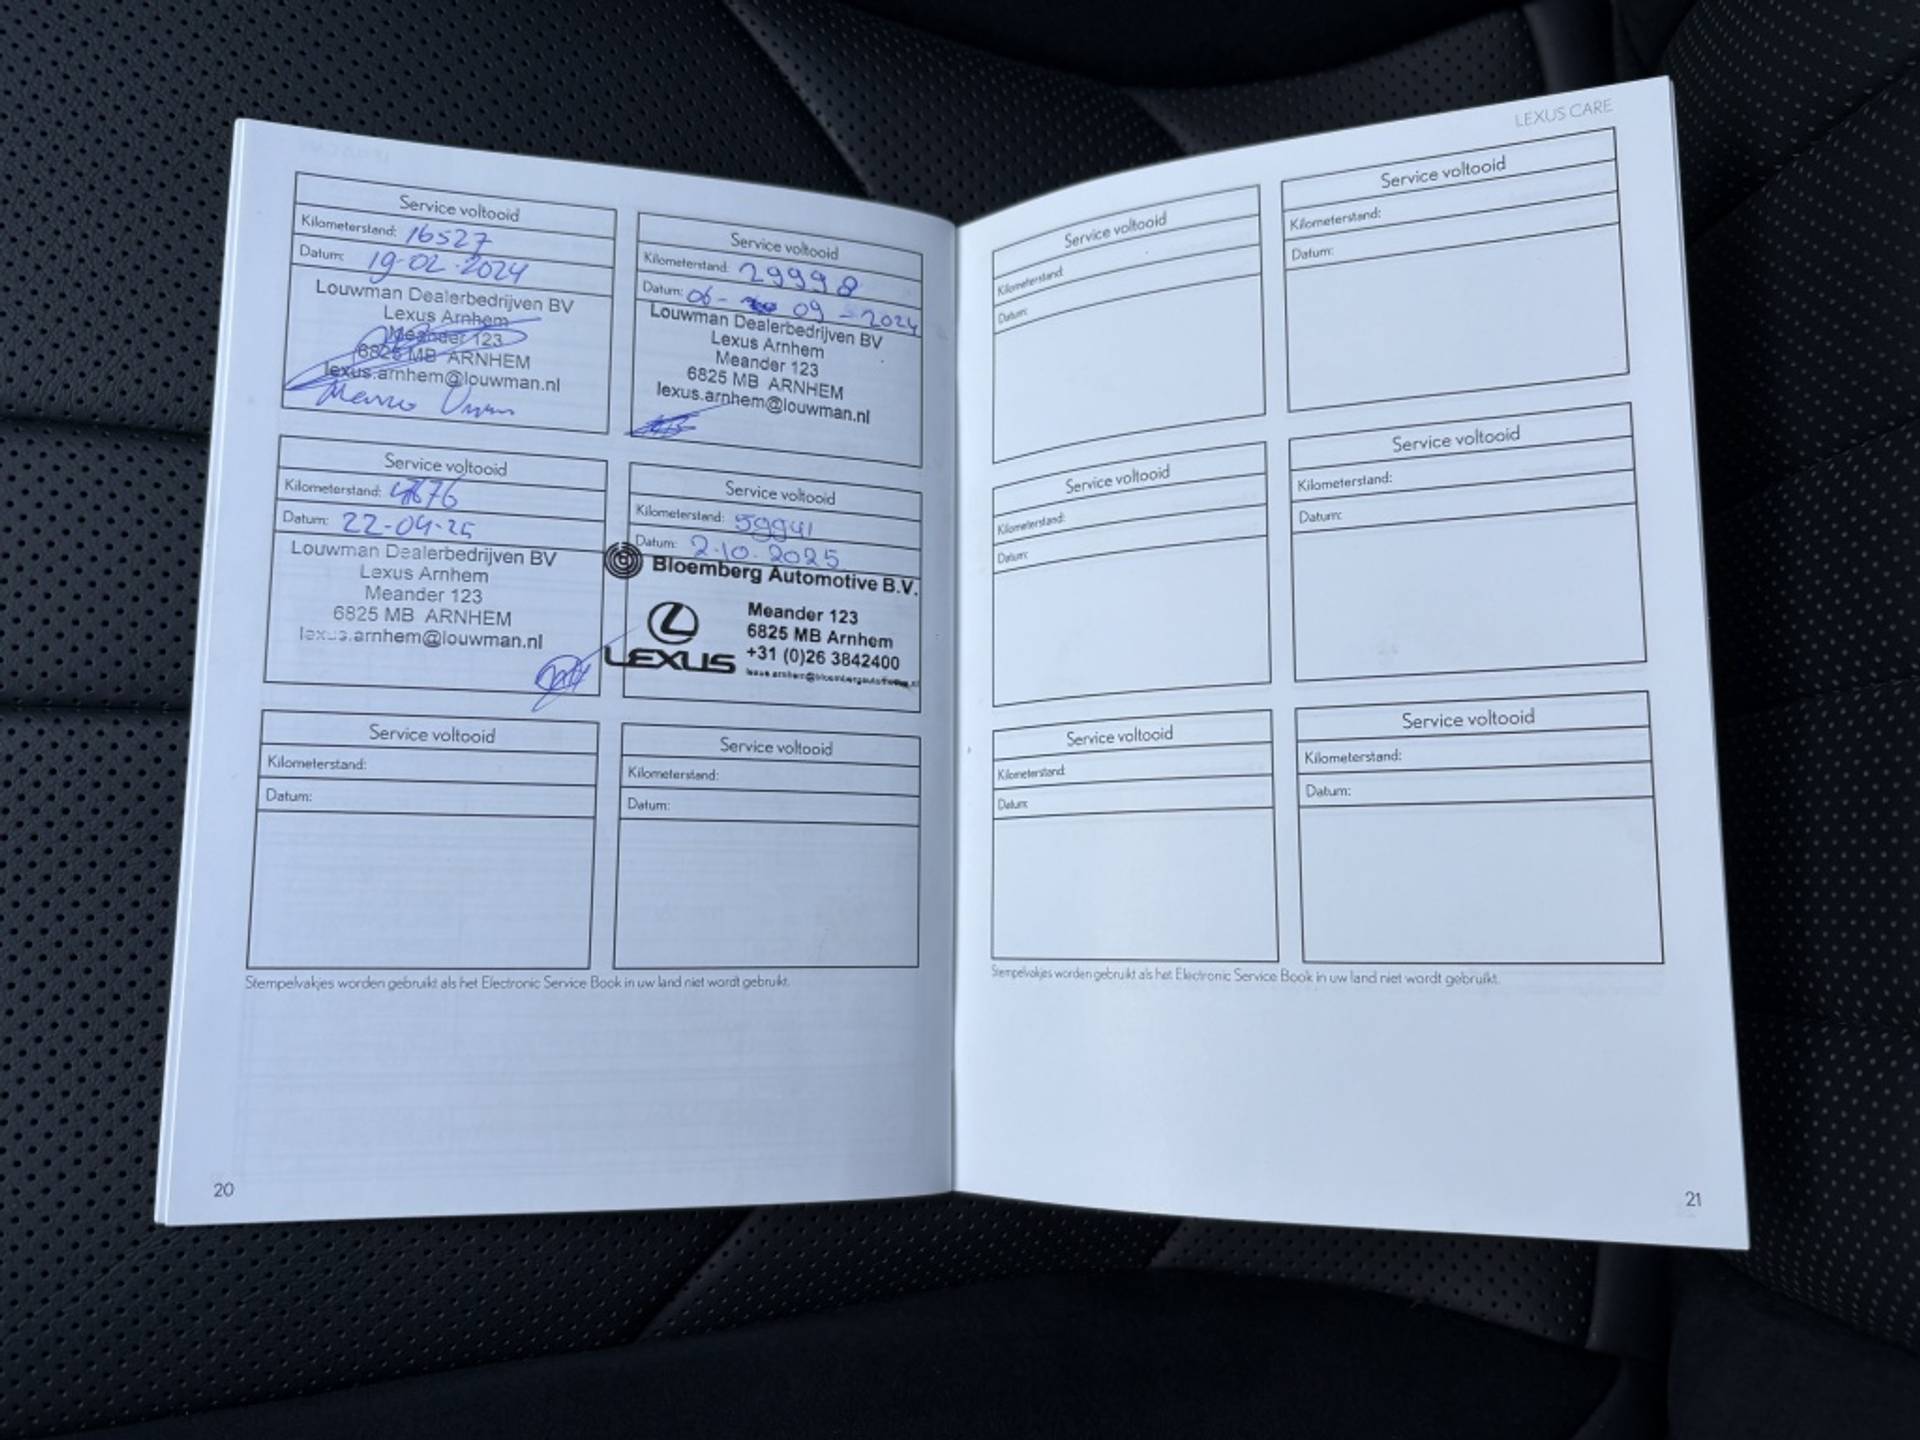 Service voltooid
Kilometerstand: 16527
Datum: 19-02-2024
Louwman Dealerbedrijven BV
Lexus Arnhem
Meander 123
6825 MB ARNHEM
lexus.arnhem@louwman.nl
Service voltooid
Kilometerstand: 29998
Datum: 06- 09 -2024
Louwman Dealerbedrijven BV
Lexus Arnhem
Meander 123
6825 MB ARNHEM
lexus.arnhem@louwman.nl
Service voltooid
Kilometerstand:
Datum: 22-04-25
Louwman Dealerbedrijven BV
Lexus Arnhem
Meander 123
6825 MB ARNHEM
lexus.arnhem@louwman.nl
Service voltooid
Kilometerstand: 59941
Datum: 2-10-2025
Bloemberg Automotive B.V.
LEXUS
Meander 123
6825 MB Arnhem
+31 (0)26 3842400
Service voltooid
Kilometerstand:
Datum:
Service voltooid
Kilometerstand:
Datum:
Stempelvakjes worden gebruikt als het Electronic Service Book in uw land niet wordt gebruikt.
20
LEXUS CARE
Service voltooid
Kilometerstand:
Datum:
Service voltooid
Kilometerstand:
Datum:
Service voltooid
Kilometerstand:
Datum:
Service voltooid
Kilometerstand:
Datum:
Service voltooid
Kilometerstand:
Datum:
Service voltooid
Kilometerstand:
Datum:
Stempelvakjes worden gebruikt als het Electronic Service Book in uw land niet wordt gebruikt.
21